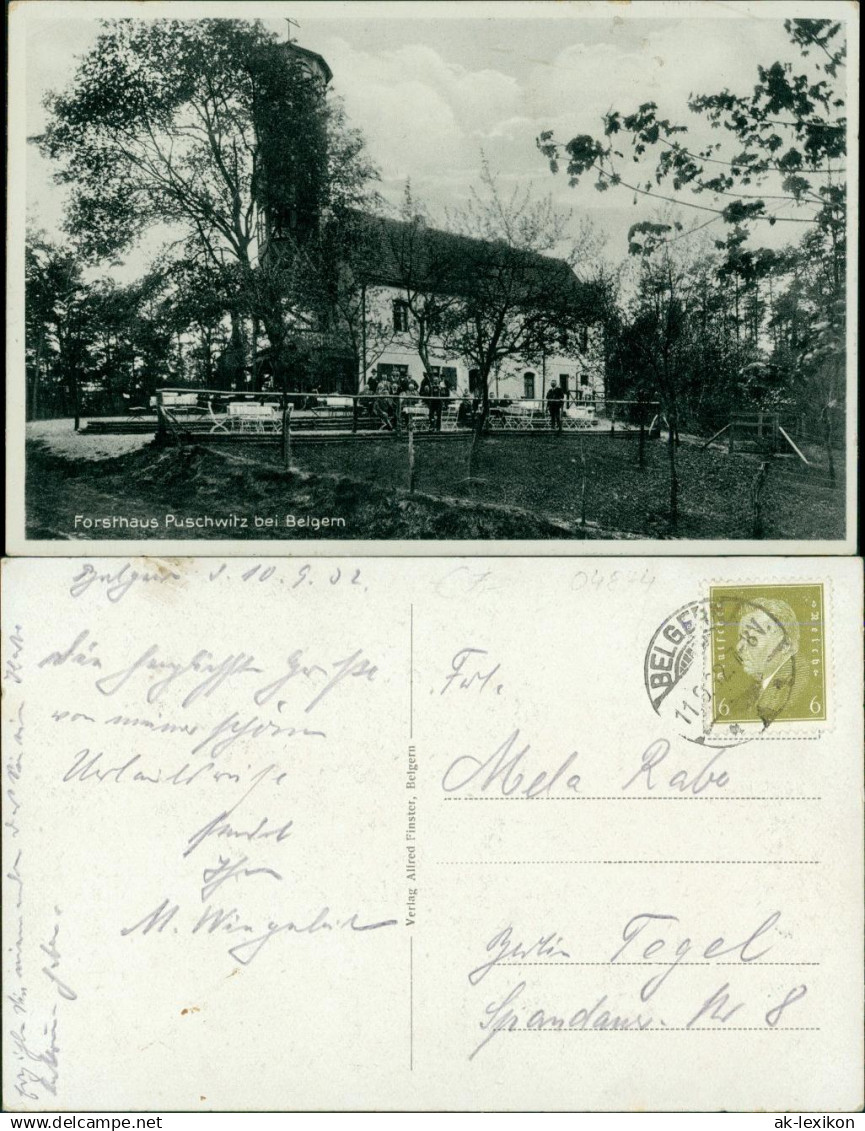 Forsthaus Puschwitz bei Belgern
Belgern d. 10.9.32.
Die herzlichste Grüße
von meiner schönen
Urlaubsreise
sendet
Ihr
M.
Verlag Alfred Finster, Belgern
BELGERN
11.9.32. 7-8V.
Deutsches Reich
6 6
Frl.
Mela Rabe
Berlin Tegel
Spandauer Nr 8
www.ansichtskarten-lexikon.de
ak-lexikon